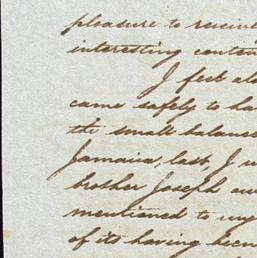 pleasure to receive
interesting conten
I felt al
came safely to ha
the small balance
Jamaica, last, I w
brother Joseph aw
mentioned to my
of its having been